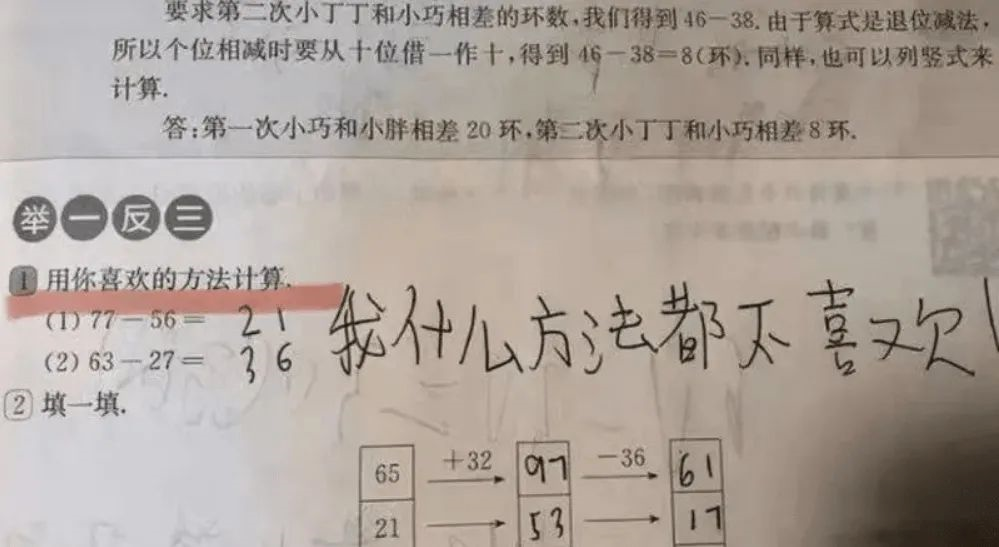 要求第二次小丁丁和小巧相差的环数,我们得到46-38.由于算式是退位减法,
所以个位相减时要从十位借一作十,得到46-38=8(环).同样,也可以列竖式来
计算.
答:第一次小巧和小胖相差20环,第二次小丁丁和小巧相差8环.
举一反三
1 用你喜欢的方法计算.
(1) 77-56= 21
(2) 63-27= 36
我什么方法都不喜欢!
2 填一填.
65 +32 97 -36 61
21 53 17